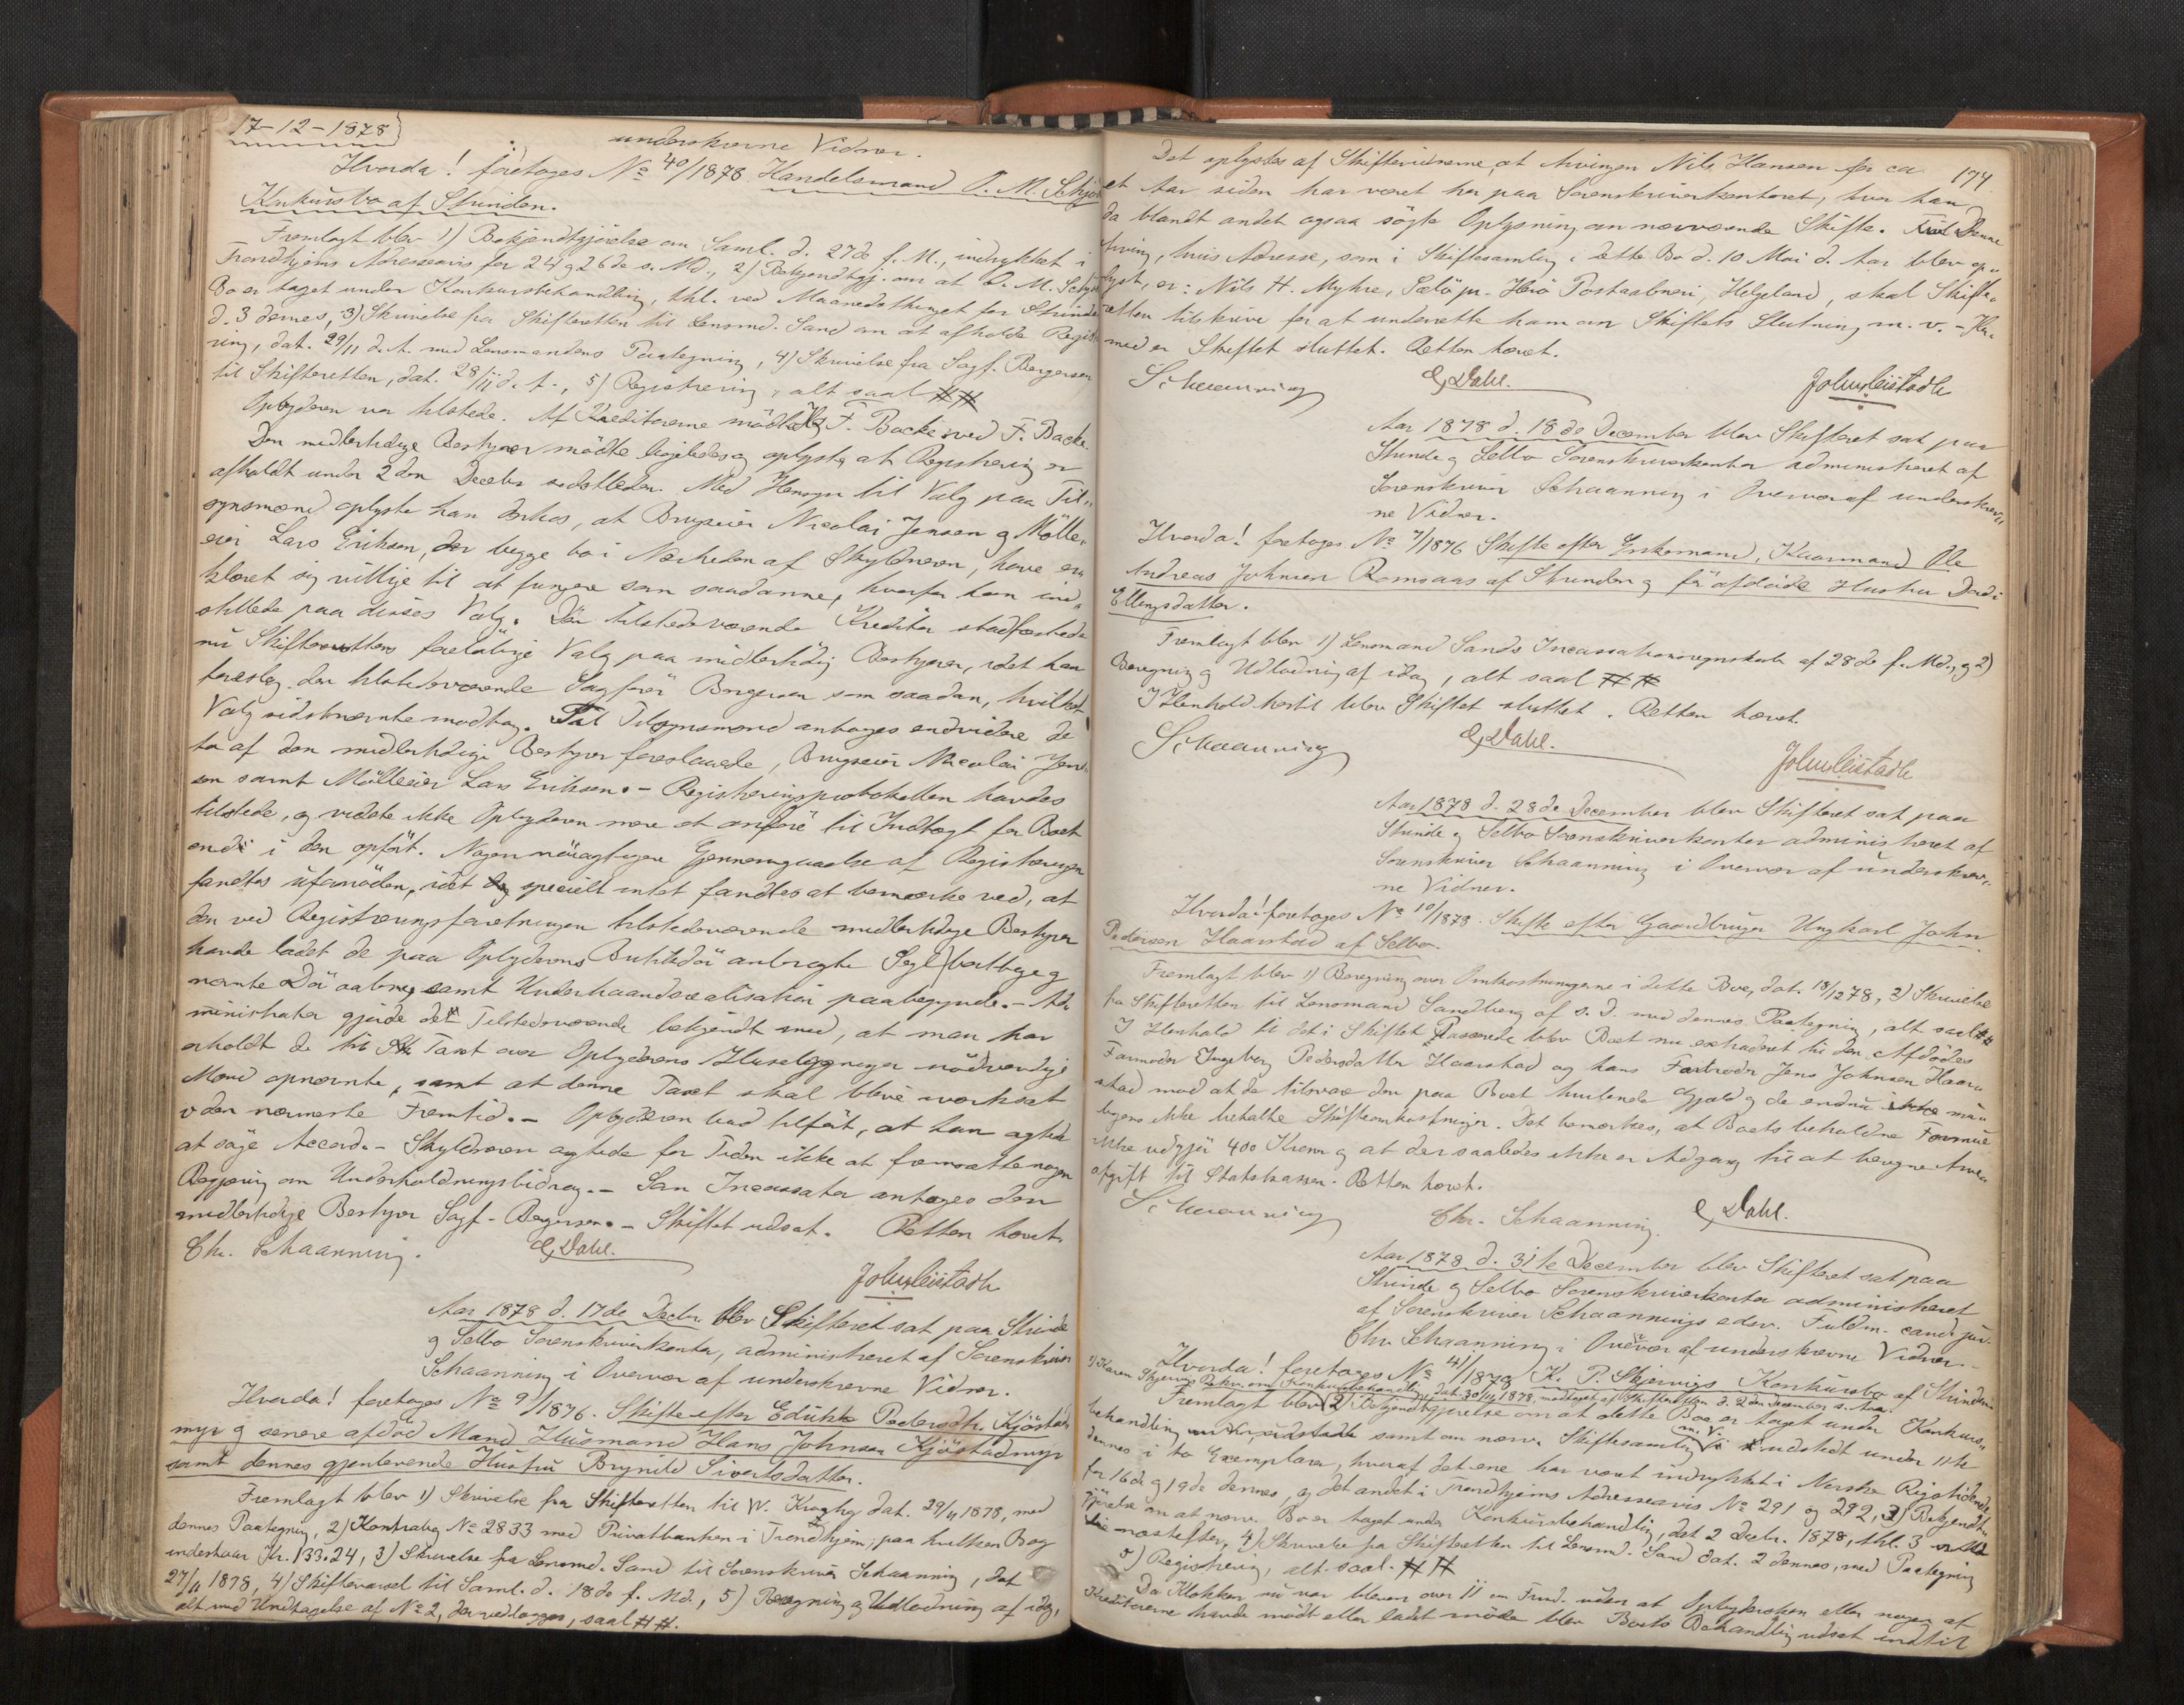 17-12-1878
underskrevne Vidner.
Hvorda! foretoges No 40/1878 Handelsmand O. M. Schjer
Konkursbo af Strinden.
Fremlagt blev 1) Bekjendtgjörelse om Saml. d. 27de f. M., indrykket i
Trondhjems Adresseavis for 24 og 26de s. Md., 2) Bekjendtgj. om at O. M. Schjer
Bo er taget under Konkursbehandling, thl. ved Maanedsthinget for Strinde
d. 3 dennes, 3) Skrivelse fra Skifteretten til Lensmd. Sand om at afholde Regist
ring, dat. 29/11 d. A. med Lensmandens Paategning, 4) Skrivelse fra Sagf. Bergersen
til Skifteretten, dat. 28/11 d. A., 5) Registrering, alt saal. ##
Opbyderen var tilstede. Af Kreditorerne mödte F. Backe ved F. Backe.
Den midlertidige Bestyrer mödte ligeledes og oplyste, at Registrering er
afholdt under 2den Decbr sidstleden. Med Hensyn til Valg paa Til„
synsmænd oplyste han derhos, at Brugseier Nicolai Jensen og Mölle„
eier Lars Eriksen, der begge bo i Nærheden af Skyldneren, have er„
klæret sig villige til at fungere som saadanne, hvorfor han ind„
stillede paa disses Valg. Den tilstedeværende Kreditor stadfæstede
nu Skifterettens foreløbige Valg paa midlertidig Bestyrer, idet han
foreslog den tilstedeværende Sagfører Bergersen som saadan, hvilket
Valg sidstnævnte modtog. Til Tilsynsmænd antoges endvidere de
to af den midlertidige Bestyrer foreslaaede, Brugseier Nicolai Jen„
sen samt Mölleeier Lars Eriksen. - Registreringsprotokollen havdes
tilstede, og vidste ikke Opbyderen mere at anføre til Indtægt for Boet
end i den opfört. Nogen nöiagtigere Gjennemgaaelse af Registreringen
fandtes ufornöden, idet specielt intet fandtes at bemærke ved, at
den ved Registreringsforretningen tilstedeværende midlertidige Bestyrer
havde ladet de paa Opbyderens Butikdör anbragte Segl borttage og
nævnte Dör aabne, samt Underhaandsrealisation paabegynde. - Ad„
ministrator gjorde de Tilstedeværende bekjendt med, at man har
erholdt de til Taxt over Opbyderens Huusbygninger nödvendige
Mænd opnævnte, samt at denne Taxt skal blive iværksat
i den nærmeste Fremtid. - Opbyderen bad tilfört, at han agtede
at söge Accord. - Skyldneren agtede for Tiden ikke at fremsætte nogen
Begjæring om Underholdningsbidrag. - Som Incassator antoges den
midlertidige Bestyrer Sagf. Bergersen. - Skiftet udsat. Retten hævet.
Chr. Schaanning. E Dahl.
John Leistadh
Aar 1878 d. 17de Decbr. blev Skifteret sat paa Strinde
og Selbo Sorenskriverkontor, administreret af Sorenskriver
Schaanning i Overvær af underskrevne Vidner.
Hvorda! foretoges No 9/1876. Skifte efter Edükke Pedersdtr. Kjöstad
myr og senere afdöd Mand Huusmand Hans Johnsen Kjöstadmyr
samt dennes gjenlevende Hustru Brynild Sivertsdatter.
Fremlagt blev 1) Skrivelse fra Skifteretten til W. Kragh dat. 29/11 1878, med
dennes Paategning, 2) Kontrabog No 2833 med Privatbanken i Trondhjem, paa hvilken Bog
indestaar Kr. 133.24, 3) Skrivelse fra Lensmd. Sand til Sorenskriver Schaanning, dat
27/11 1878, 4) Skiftevarsel til Saml. d. 18de f. Md., 5) Beregning og Udlodning af idag,
alt med Undtagelse af No 2, der vedlægges, saal. ##.
174
Det oplystes af Skiftevidnerne, at Arvingen Nils Hansen for ca
et Aar siden har været her paa Sorenskriverkontoret, hvor han
da blandt andet ogsaa sögte Oplysning om nærværende Skifte. Denne
Arving, hvis Adresse, som i Skiftesamling i dette Bo d. 10 Mai d. Aar blev op„
lyst, er: Nils H. Myhre, Sælö pr. Herö Postaabneri, Helgeland, skal Skifte„
retten tilskrive for at underrette ham om Skiftets Slutning m. v. - Her„
med er Skiftet sluttet. Retten hævet.
Schaanning E Dahl. John Leistadh
Aar 1878 d. 18de December blev Skifteret sat paa
Strinde og Selbo Sorenskriverkontor administreret af
Sorenskriver Schaanning i Overvær af underskrev„
ne Vidner.
Hvorda! foretoges No 7/1876 Skifte efter Enkemand, Kaarmand Ole
Andreas Johnsen Romsaas af Strinden og för afdöde Hustru Dordi
Ellingsdatter.
Fremlagt blev 1) Lensmand Sands Incassationsregnskab af 28de f. Md., og 2)
Beregning og Udlodning af idag, alt saal. ##
I Henhold hertil blev Skiftet sluttet. Retten hævet.
Schaanning E Dahl. John Leistadh
Aar 1878 d. 28de December blev Skifteret sat paa
Strinde og Selbo Sorenskriverkontor administreret af
Sorenskriver Schaanning i Overvær af underskrev„
ne Vidner.
Hvorda! foretoges No 10/1878. Skifte efter Gaardbruger Ungkarl John
Pedersen Haarstad af Selbo.
Fremlagt blev 1) Beregning over Omkostningerne i dette Bo, dat. 18/12 78, 2) Skrivelse
fra Skifteretten til Lensmand Sandberg af s. D. med dennes Paategning, alt saal. ##
I Henhold til det i Skiftet Passerede blev Boet nu extraderet til den Afdödes
Farmoder Ingeborg Pedersdatter Haarstad og hans Farbroder Jens Johnsen Haar„
stad mod at de tilsvare den paa Boet hvilende Gjæld og de endnu mu„
ligens ikke betalte Skifteomkostninger. Det bemærkes, at Boets beholdne Formue
ikke udgjör 400 Kroner og at der saaledes ikke er Adgang til at beregne Arve„
afgift til Statskassen. Retten hævet.
Schaanning Chr. Schaanning. E Dahl.
Aar 1878 d. 31te December blev Skifteret sat paa
Strinde og Selbo Sorenskriverkontor administreret
af Sorenskriver Schaannings edsv. Fuldm. cand. jur.
Chr. Schaanning i Overvær af underskrevne Vidner.
Hvorda! foretoges No 41/1878 K. P. Skjervigs Konkursbo af Strinden
1) Karen Skjervigs Bekr. om Konkursbehandling, dat. 30/11 1878, modtaget af Skifteretten d. 2den December s. Aar.
Fremlagt blev 2) Bekjendtgjörelse om at dette Bo er taget under Konkurs„
behandling samt om nærv. Skiftesamling m. V. udstedt under 11te
dennes i to Exemplarer, hvoraf det ene har været indrykket i Norske Rigstidende
for 16de og 19de dennes, og det andet i Trondhjems Adresseavis No 291 og 292, 3) Bekjendt„
gjörelse om at nærv. Bo er taget under Konkursbehandling, dat 2 Decbr. 1878, thl. 3
næstefter, 4) Skrivelse fra Skifteretten til Lensmd. Sand dat. 2 dennes, med Paategning
5) Registrering, alt saal. ##
Da Klokken nu var bleven over 11 om Formd. uden at Opbydersken eller nogen af
Kreditorerne havde mödt eller ladet möde blev Boets Behandling udsat indtil